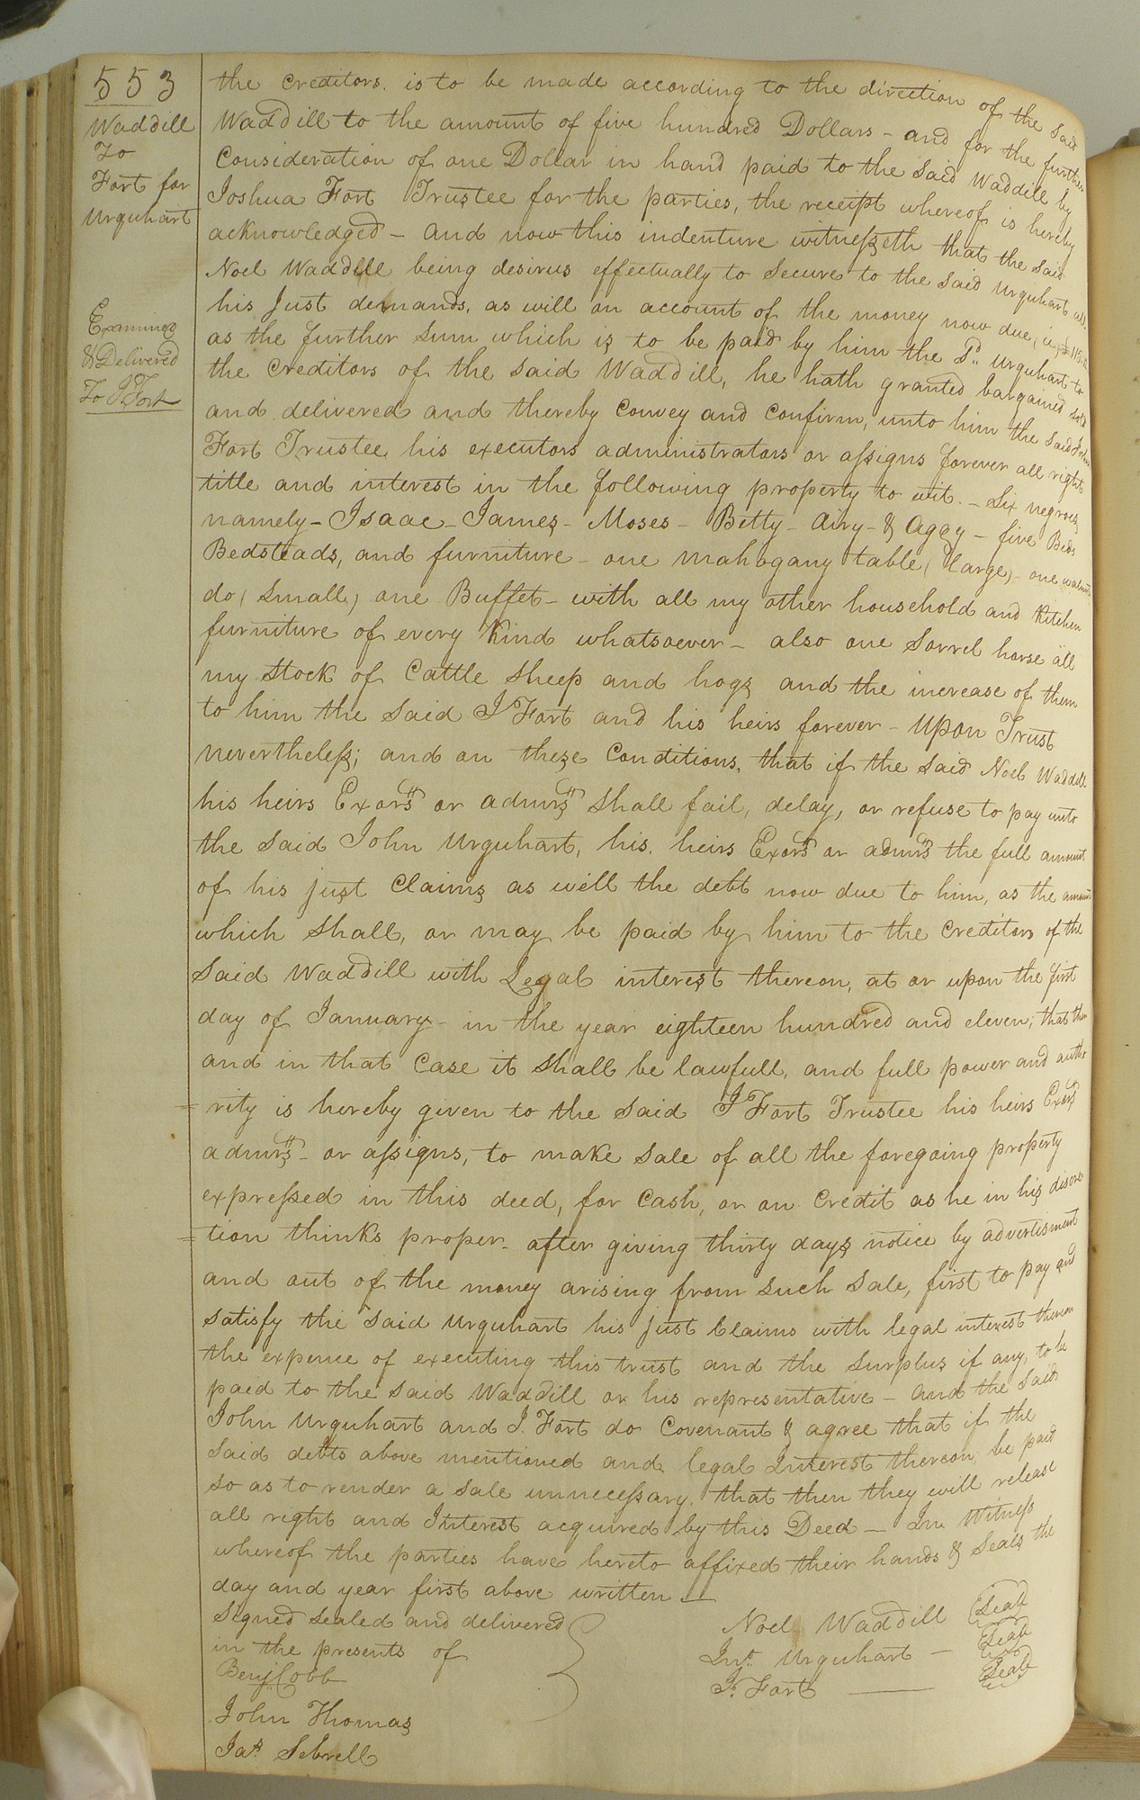 553
Waddill
To
Fort for
Urquhart
Examined
& Delivered
To J Fort
the Creditors. is to be made according to the direction of the said
Waddill to the amount of five hundred Dollars - and for the further
Consideration of one Dollar in hand paid to the said Waddill by
Joshua Fort Trustee for the parties, the receipt whereof is hereby
acknowledged - and now this indenture witnesseth that the said
Noel Waddill being desirus effectually to secure to the said Urquhart
his Just demands, as will on account of the money now due,
as the further sum which is to be paid by him the Sd. Urquhart to
the Creditors of the said Waddill, he hath granted bargained sold
and delivered and thereby Convey and Confirm, unto him the said John
Fort Trustee, his executors administrators or assigns forever all right
title and interest in the following property to wit. - Six negroes,
namely - Isaac - James - Moses - Betty - Airy - & Aggy - five Beds
Bedsteads, and furniture - one mahogany table (large) - one walnut
do (small) one Buffet - with all my other household and Kitchen
furniture of every Kind whatsoever - also one Sorrel horse all
my stock of Cattle sheep and hogs and the increase of them
to him the said J Fort and his heirs forever - Upon Trust
nevertheless; and on these Conditions, that if the said Noel Waddill
his heirs Exors or admrs shall fail, delay, or refuse to pay unto
the said John Urquhart, his. heirs Exors or admrs the full amount
of his just Claims as well the debt now due to him, as the amount
which shall, or may be paid by him to the Creditors of the
said Waddill with Legal interest thereon, at or upon the first
day of January - in the year eighteen hundred and eleven; that then
and in that Case it shall be lawfull, and full power and autho
=rity is hereby given to the said J Fort Trustee his heirs Exors
admrs - or assigns, to make sale of all the foregoing property
expressed in this deed, for Cash, or on Credit as he in his discre
=tion thinks proper - after giving thirty days notice by advertisment
and out of the money arising from such sale, first to pay and
satisfy the said Urquhart his just Claims with legal interest thereon
the expence of executing this trust and the surplus if any, to be
paid to the said Waddill or his representative - and the said
John Urquhart and J. Fort do Covenant & agree that if the
said debts above mentioned and legal Interest thereon, be paid
so as to render a sale unnecessary. that then they will release
all right and Interest acquired by this Deed - In Witness
whereof the parties have hereto affixed their hands & Seals the
day and year first above written -
Signed sealed and delivered
in the presents of
Benj Cobb
John Thomas
Jas. Sebrell
Noel Waddill (Seal)
Jno. Urquhart - (Seal)
J. Fort - (Seal)